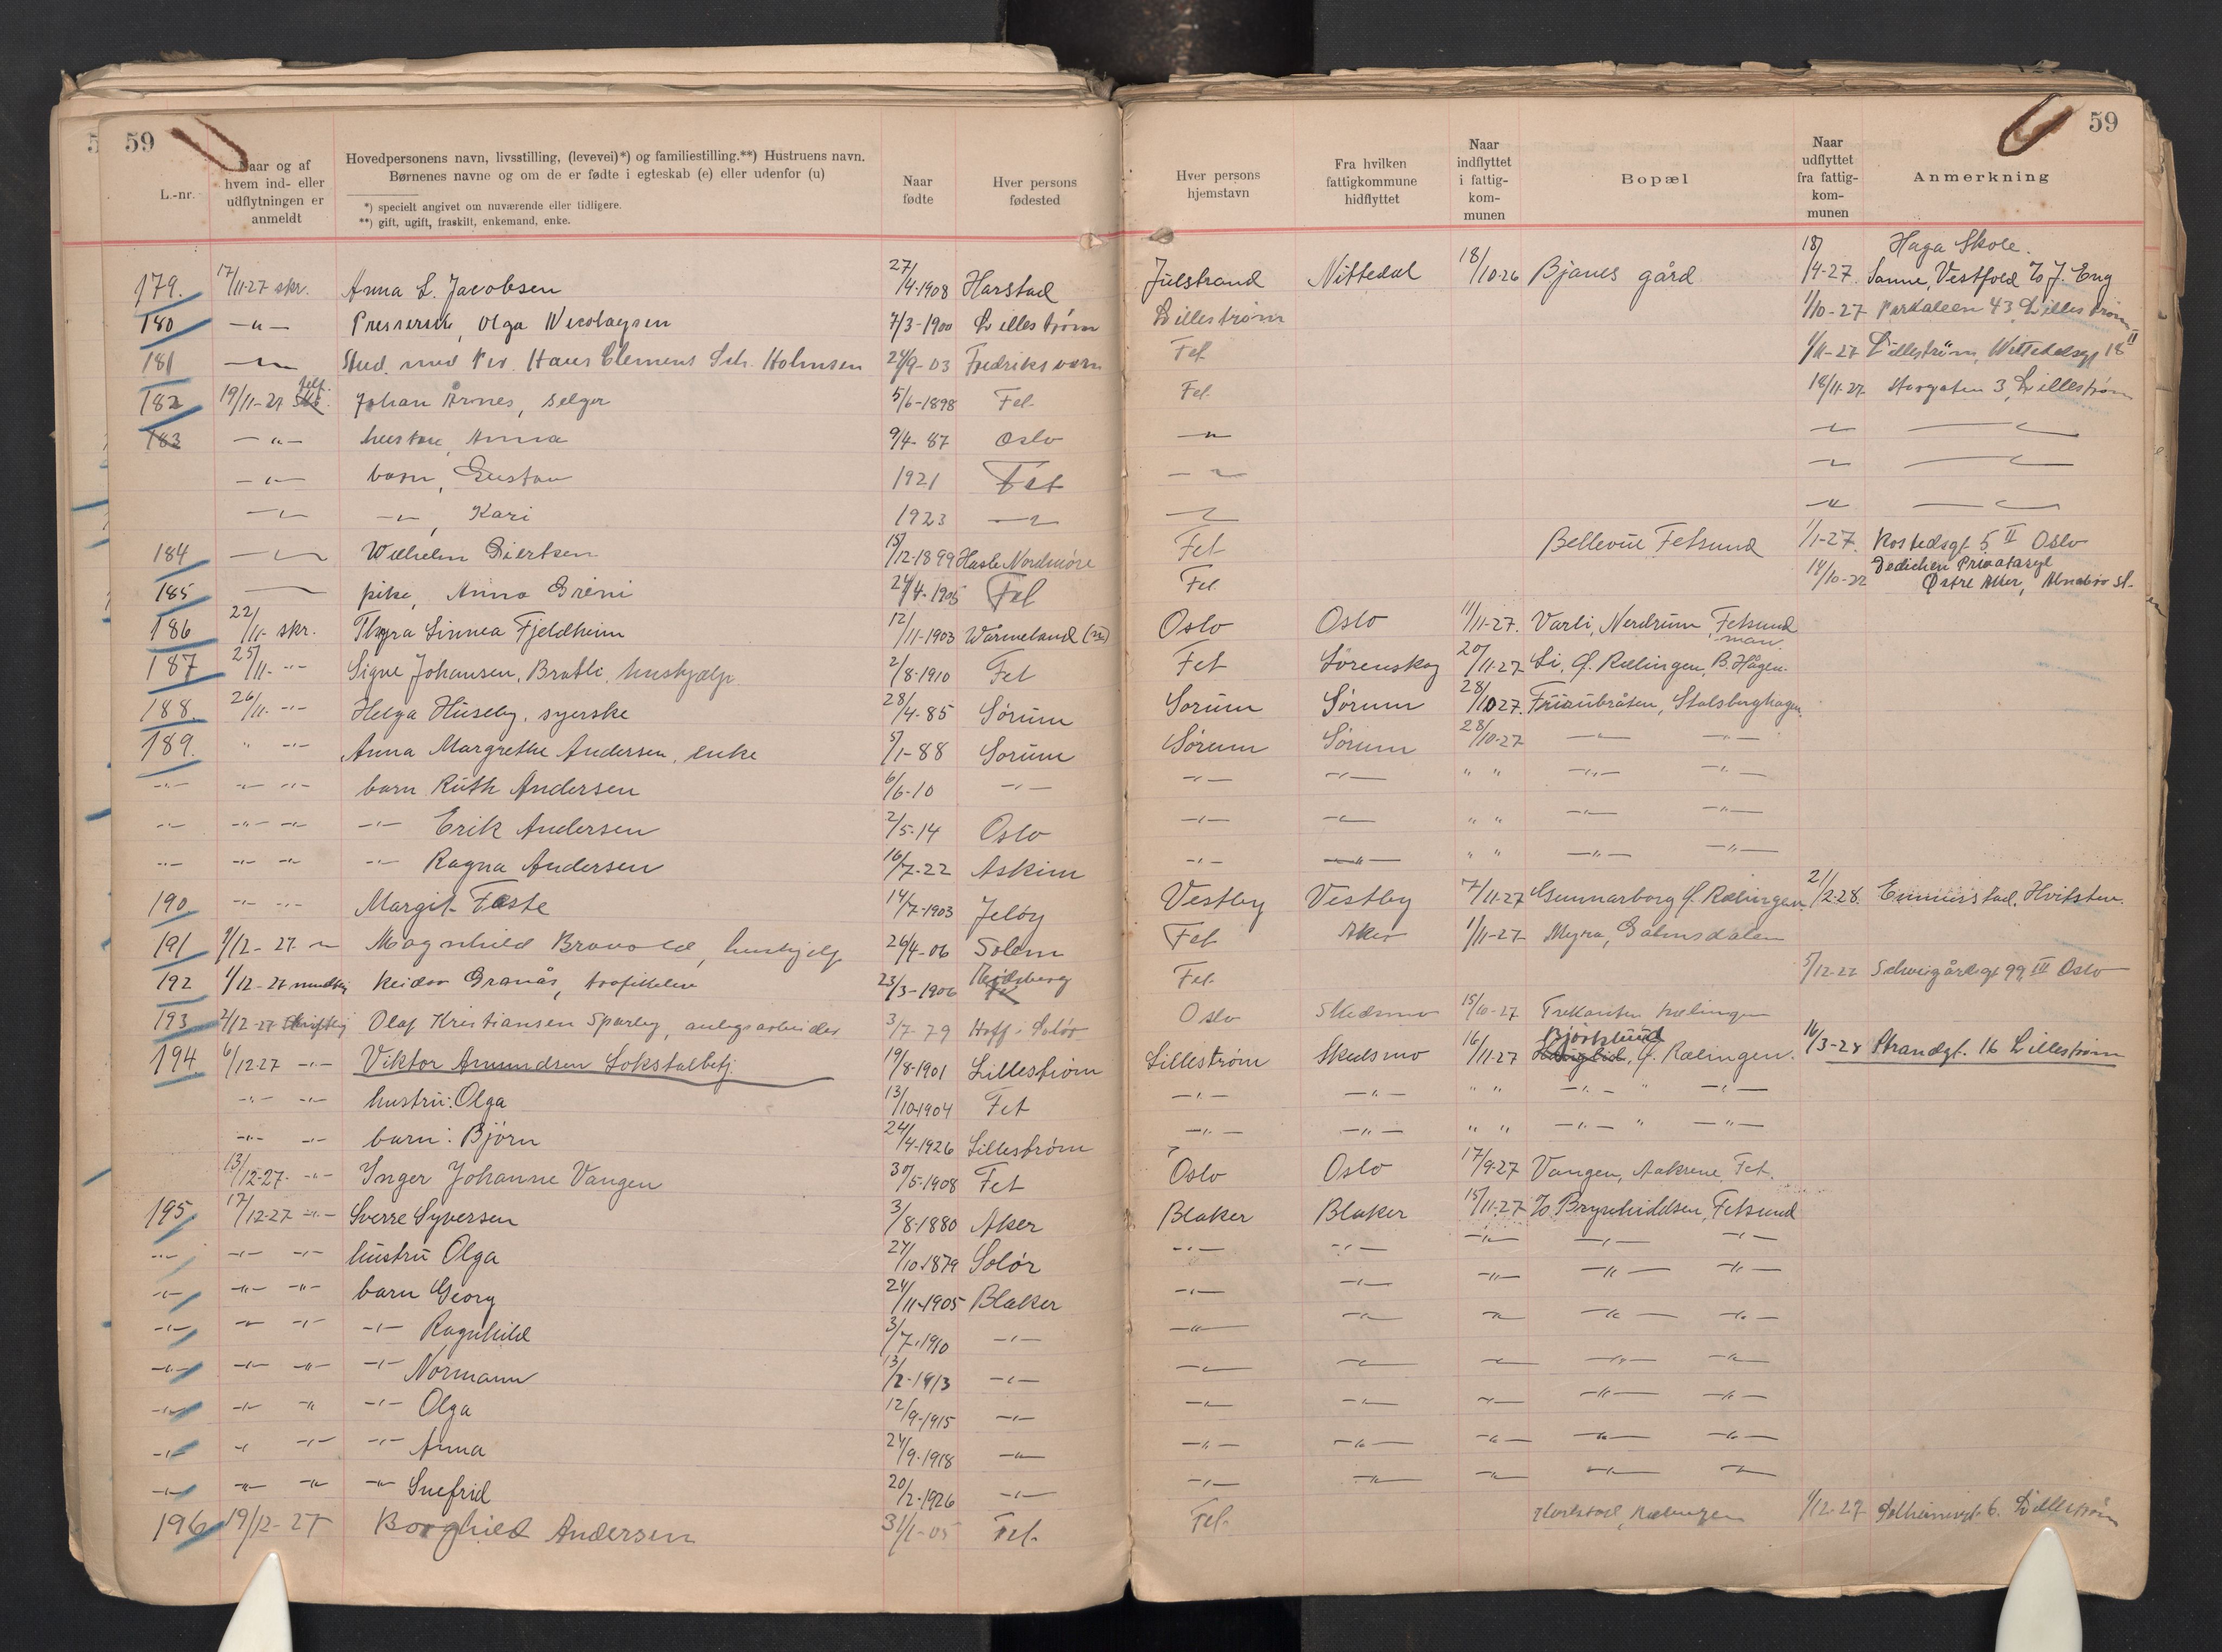 59
59
L.-nr.
Naar og af hvem ind- eller udflytningen er anmeldt
Hovedpersonens navn, livsstilling, (levevei)*) og familiestilling.**) Hustruens navn. Børnenes navne og om de er fødte i egteskab (e) eller udenfor (u)
*) specielt angivet om nuværende eller tidligere.
**) gift, ugift, fraskilt, enkemand, enke.
Naar fødte
Hver persons fødested
Hver persons hjemstavn
Fra hvilken fattigkommune hidflyttet
Naar indflyttet i fattig-kom-munen
Bopæl
Naar udflyttet fra fattig-kom-munen
Anmerkning
179. 17/11-27 skr. Anna L. Jacobsen 27/4-1908 Harstad Julstrand Nittedal 18/10-26 Bjanes gård 18/4-27 Haga Skole. Sanne, Vestfold %J. Eng
180 -"- Presserske, Olga Nicolaysen 7/3-1900 Lillestrøm Lillestrøm 1/10-27 Parkaleen 43 Lillestrøm
181 -"- Stud. med Per. Hans Clemens Sch. Holmsen 24/9-03 Fredriksværn Fet 1/11-27 Lillestrøm, Nittedalsgt 18 II
182 19/11-27 telf. Johan Årnes, selger 5/6-1898 Fet Fet 18/11-27 Storgaten 3, Lillestrøm
183 -"- hustru, Anna 9/4-87 Oslo -"- -"- -"-
-"- barn, Gustav 1921 Fet -"- -"- -"-
-"- -"-, Kari 1923 -"- -"- -"- -"-
184 -"- Wilhelm Giertsen 15/12-1899 Hasle Nordmøre Fet Bellevue Fetsund 1/1-27. Kostedsgt 5 II Oslo
185 -"- pike, Anna Greni 24/4-1905 Fet Fet 14/10-22 Dedichen Privatasyl Østre Aker, Alnabro st.
186 22/11- skr. Thyra Linnea Fjeldheim 12/11-1903 Wärmeland Oslo Oslo 11/11-27. Varli, Nerdrum, Fetsund
187 25/11- -"- Signe Johansen, Bratli, hushjælp. 2/8-1910 Fet Fet Lørenskog 20/11-27 Li, Ø. Rælingen, B. Hågen.
188. 26/11- -"- Helga Huseby, syerske 28/4-85 Sørum Sørum Sørum 28/10 27. Friaubråten, Stalsberghagen.
189. " -"- Anna Margrethe Andersen, enke 5/1-88 Sørum Sørum Sørum 28/10-27 -"- -"-
-"- -"- -"- barn Ruth Andersen 6/6-10 -"- -"- -"- " " -"- -"-
-"- -"- -"- -"- Erik Andersen 2/5-14 Oslo -"- -"- " " -"- -"-
-"- -"- -"- -"- Ragna Andersen 16/7-22 Askim -"- -"- " " -"- -"-
190 -"- -"- Margit Faste 14/7-1903 Jeløy Vestby Vestby 7/11-27 Gunnarborg Ø. Rælingen. 21/2-28. Emmerstad, Hvitsten.
191 1/12-27 -"- Magnhild Bravold, hushjelp 26/4-06 Solem Fet Aker 1/11-27 Myra, Galmsdalen
192 1/12-27 mundtlig Reidar Granås, trafikkelev 23/3-1906 Fet 5/12-27 Schweigårdsgt 99 III Oslo
193 2/12-27 Skriftlig Olaf Kristiansen Sparby, anlegsarbeider 3/7-79 Hoff i Solør Oslo Skedsmo 15/10-27 Trekanten Rælingen
194 6/12-27 -"- Viktor Amundsen Lokstalbetj. 19/8-1901 Lillestrøm Lillestrøm Skedsmo 16/11-27 Bjørklund, Ø. Rælingen. 16/3-28 Strandgt. 16 Lillestrøm
-"- -"- hustru: Olga 13/10-1904 Fet -"- -"- " " -"- " -"-
-"- -"- barn: Bjørn 24/4-1926 Lillestrøm -"- -"- " " -"- " -"-
13/12-27. -"- Inger Johanne Vangen 30/5-1908 Fet Oslo Oslo 17/9-27 Vangen, Aakrene Fet.
195 17/12-27 -"- Sverre Syversen 3/8-1880 Aker Blaker Blaker 15/11-27 %Brynhildsen, Fetsund
-"- -"- -"- hustru Olga 27/10-1879 Solør -"- -"- -"- -"- -"-
-"- -"- -"- barn Georg 24/11-1905 Blaker -"- -"- -"- -"- -"-
-"- -"- -"- -"- Ragnhild 3/7-1910 -"- -"- -"- -"- -"- -"-
-"- -"- -"- -"- Normann 13/2-1913 -"- -"- -"- -"- -"- -"-
-"- -"- -"- -"- Olga 12/9-1915 -"- -"- -"- -"- -"- -"-
-"- -"- -"- -"- Anna 24/9-1918 -"- -"- -"- -"- -"- -"-
-"- -"- -"- -"- Snefrid 20/2-1926 -"- -"- -"- -"- -"- -"-
196 19/12-27 Borghild Andersen 31/1-05 Fet. Fet. Rælingen 1/12-27 Solheimsgt. 6. Lillestrøm